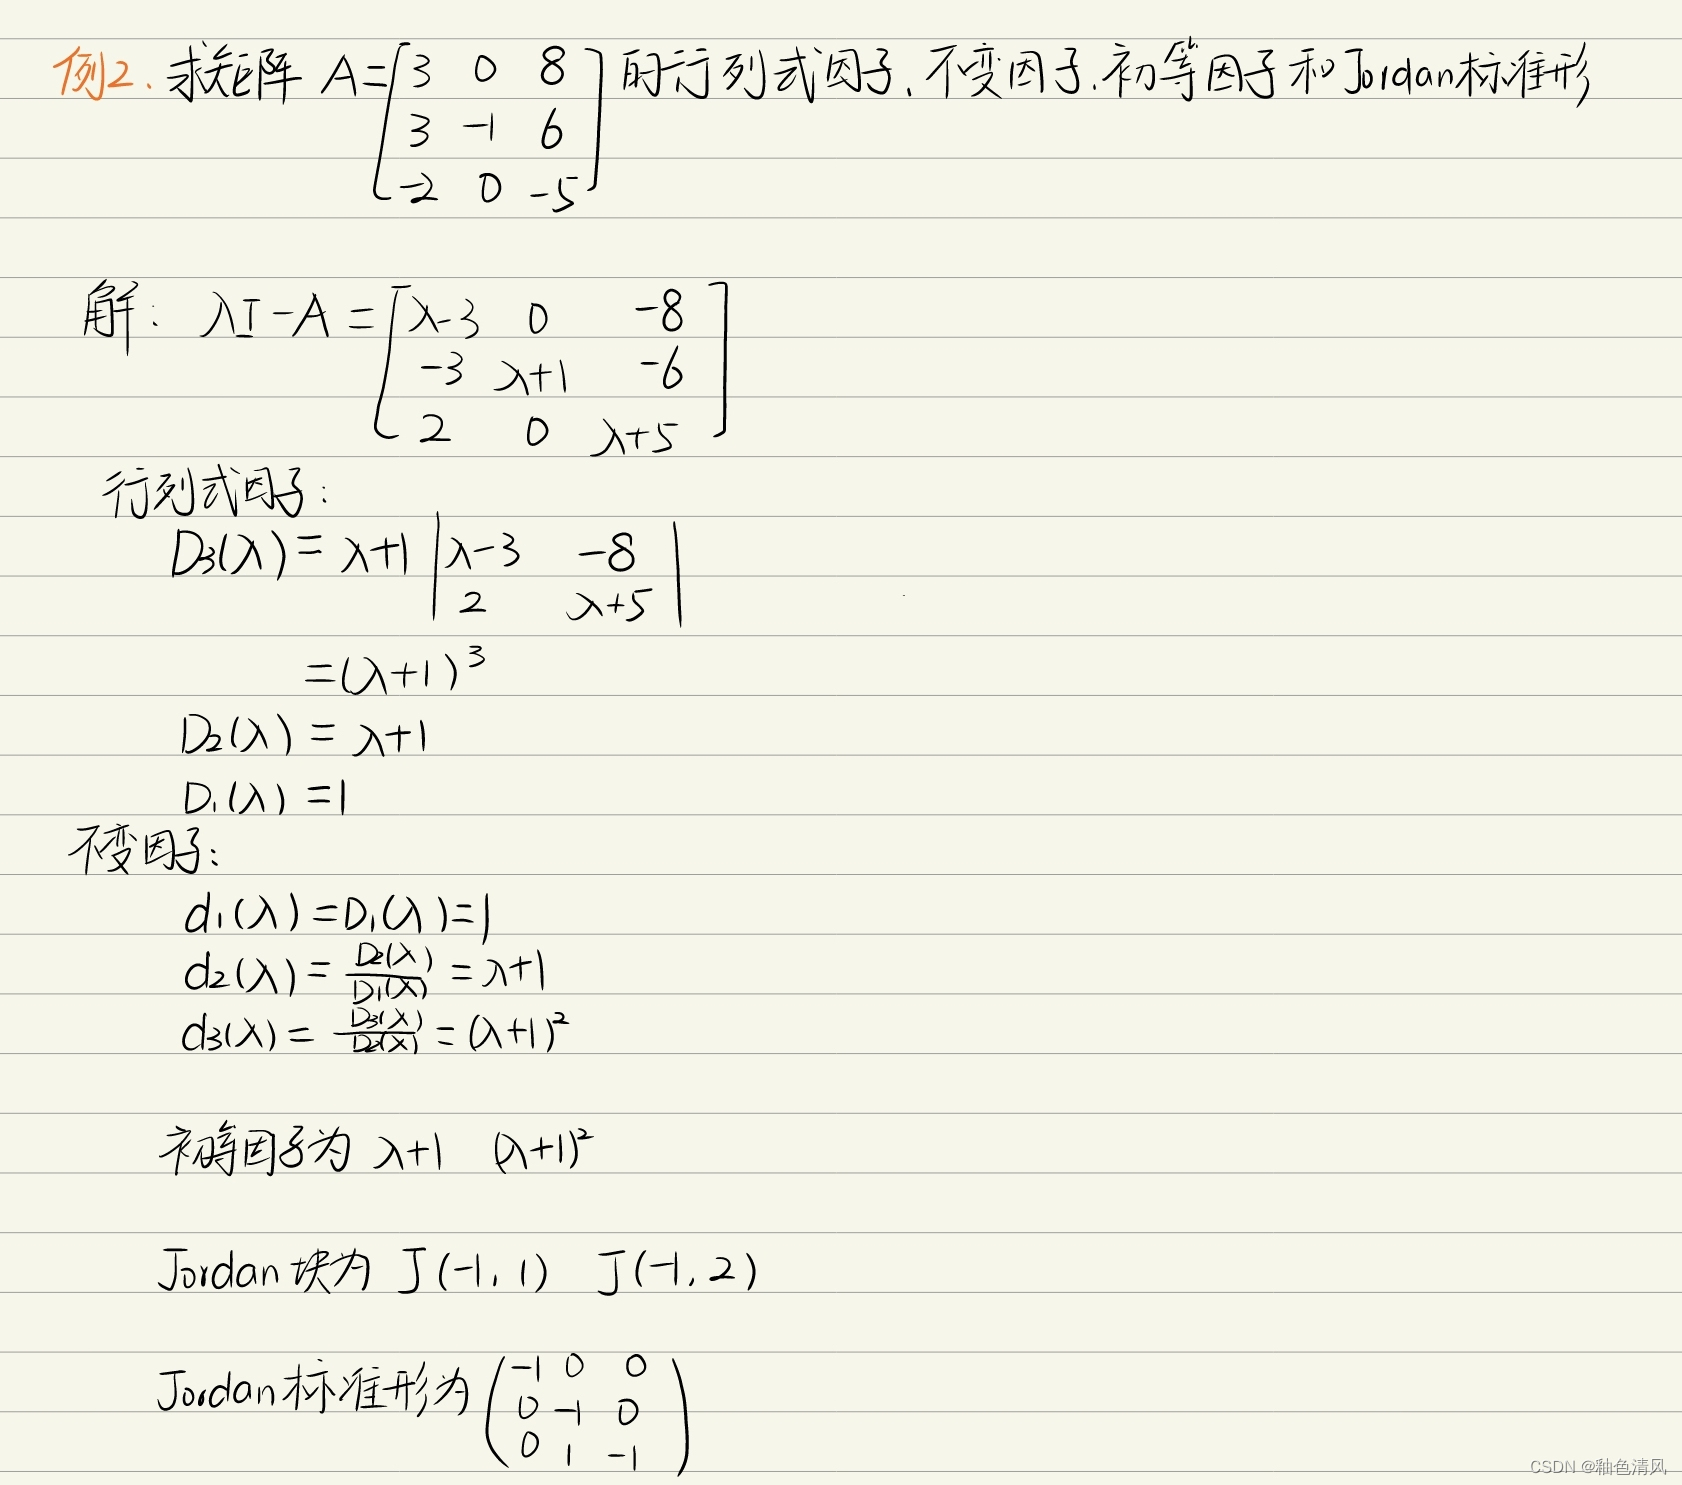 例2. 求矩阵 A=[3 0 8 的行列式因子、不变因子、初等因子和Jordan标准形
3 -1 6
-2 0 -5]
解: λI-A=[λ-3 0 -8
-3 λ+1 -6
2 0 λ+5]
行列式因子:
D₃(λ)= λ+1 |λ-3 -8
2 λ+5|
=(λ+1)³
D₂(λ) = λ+1
D₁(λ) =1
不变因子:
d₁(λ)=D₁(λ)=1
d₂(λ)= D₂(λ)/D₁(λ) = λ+1
d₃(λ)= D₃(λ)/D₂(λ) = (λ+1)²
初等因子为 λ+1 (λ+1)²
Jordan块为 J(-1,1) J(-1,2)
Jordan标准形为(-1 0 0
0 -1 0
0 1 -1)
CSDN @釉色清风